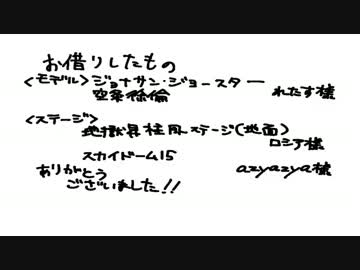 お借りしたもの
<モデル>ジョナサン・ジョースター
空条徐倫 れたす様
<ステージ>
地獄昇柱風ステージ(地面)
ロシア様
スカイドーム15 azyazya様
ありがとう
ございました!!